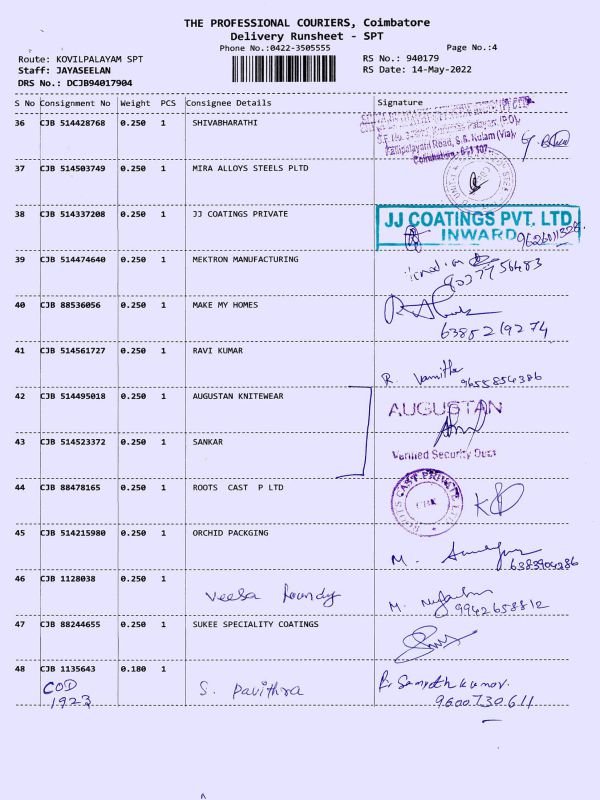 THE PROFESSIONAL COURIERS, Coimbatore
Delivery Runsheet - SPT
Phone No.:0422-3505555 Page No.:4
Route: KOVILPALAYAM SPT RS No.: 940179
Staff: JAYASEELAN RS Date: 14-May-2022
DRS No.: DCJB94017904
S No Consignment No Weight PCS Consignee Details Signature
36 CJB 514428768 0.250 1 SHIVABHARATHI
Road, S.S. Kulam (Via),
Coimbatore - 641 107.
37 CJB 514503749 0.250 1 MIRA ALLOYS STEELS PLTD
38 CJB 514337208 0.250 1 JJ COATINGS PRIVATE
JJ COATINGS PVT. LTD.
INWARD
39 CJB 514474640 0.250 1 MEKTRON MANUFACTURING
40 CJB 88536056 0.250 1 MAKE MY HOMES
6385219274
41 CJB 514561727 0.250 1 RAVI KUMAR
R. Vanitha 9655854386
42 CJB 514495018 0.250 1 AUGUSTAN KNITEWEAR
AUGUSTAN
43 CJB 514523372 0.250 1 SANKAR
Verified Security Dept
44 CJB 88478165 0.250 1 ROOTS CAST P LTD
ROOTS CAST PRIVATE LTD
45 CJB 514215980 0.250 1 ORCHID PACKGING
M. 6383904286
46 CJB 1128038 0.250 1
M. 9942658812
47 CJB 88244655 0.250 1 SUKEE SPECIALITY COATINGS
48 CJB 1135643 0.180 1
COD S. Pavithra R. Sampath kumar.
1923 9600730611